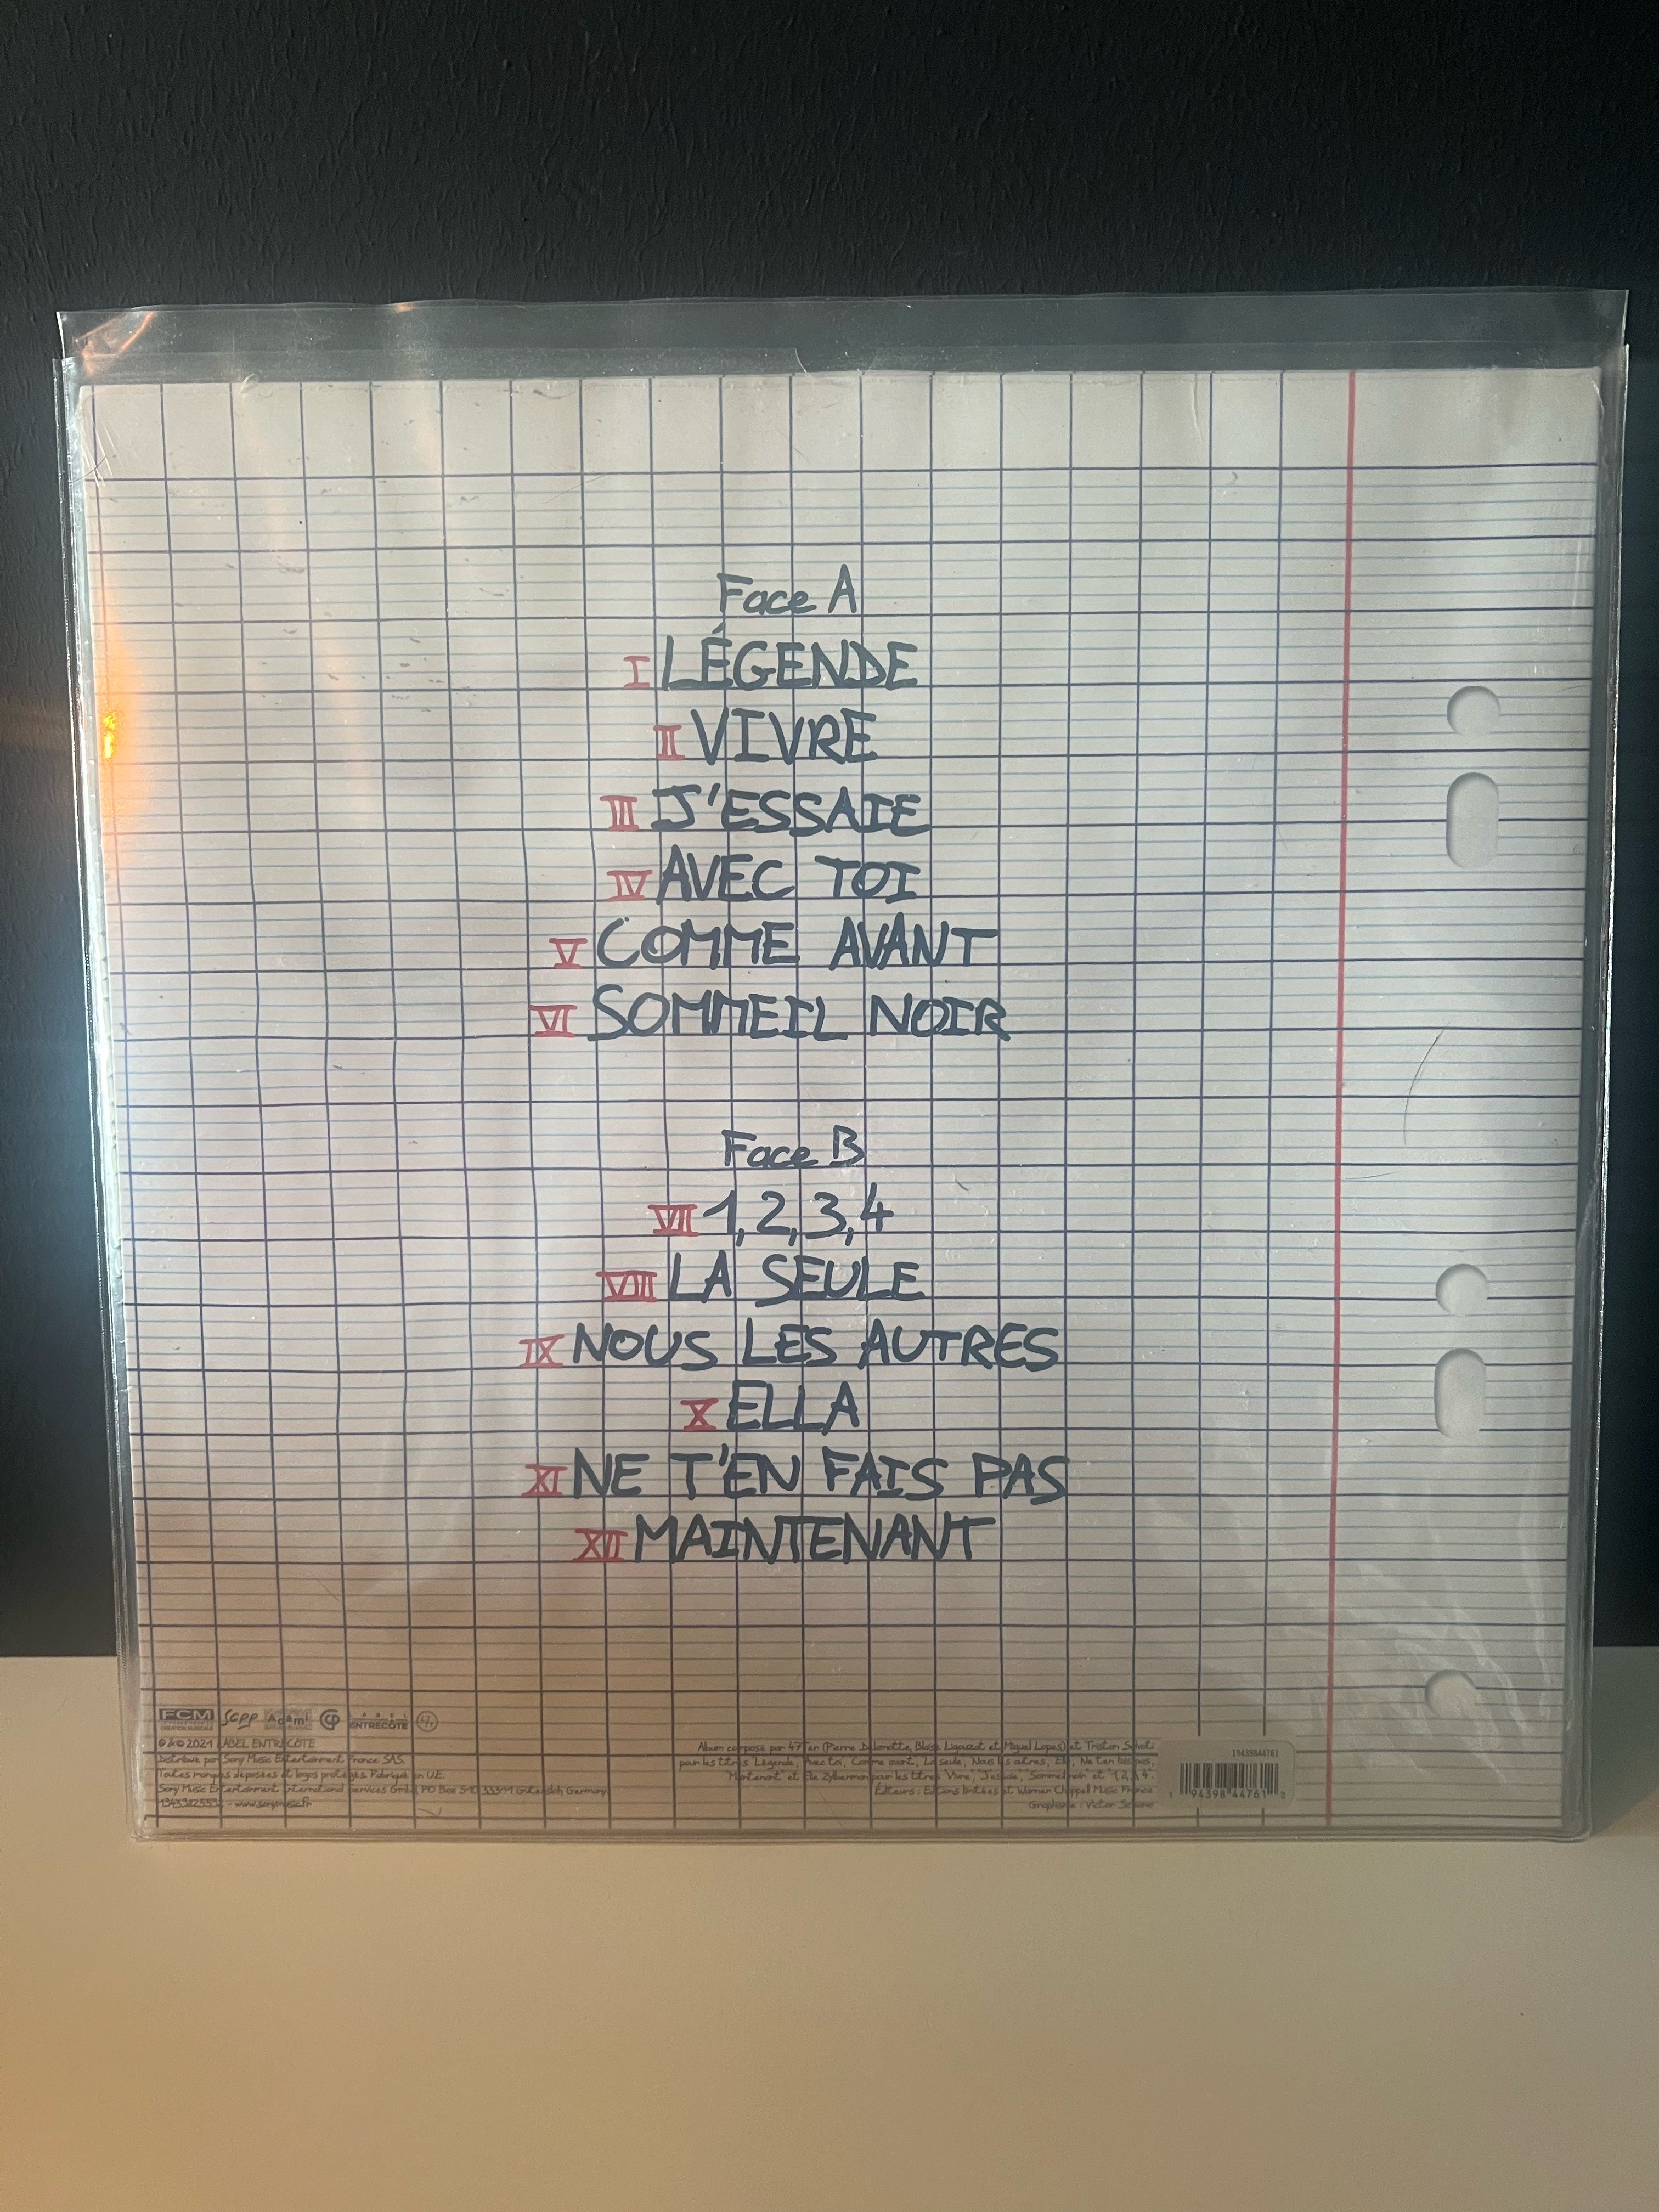 Face A
I LÉGENDE
II VIVRE
III J'ESSAIE
IV AVEC TOI
V COMME AVANT
VI SOMMEIL NOIR
Face B
VII 1, 2, 3, 4
VIII LA SEULE
IX NOUS LES AUTRES
X ELLA
XI NE T'EN FAIS PAS
XII MAINTENANT
FCM scpp Adami LABEL ENTRECÔTE
2021 LABEL ENTRECÔTE
Distribué par Sony Music Entertainment France SAS.
Toutes marques déposées et logos protégés. Fabriqué en U.E.
Sony Music Entertainment International Services GmbH, PO Box 510, 33311 Gütersloh, Germany
- www.sonymusic.fr
Album composé par 47Ter (Pierre Delamotte, Blaise Ligouzat et Miguel Lopes) et Tristan Salvati
pour les titres "Légende, Avec toi, Comme avant, La seule, Nous les autres, Ella, Ne t'en fais pas,
Maintenant" et Zylberman pour les titres "Vivre, J'essaie, Sommeil noir et 1, 2, 3, 4".
Éditeurs : Éditions limitées et Warner Chappell Music France
Graphisme : Victor
19439844761
1 94398 44761 2